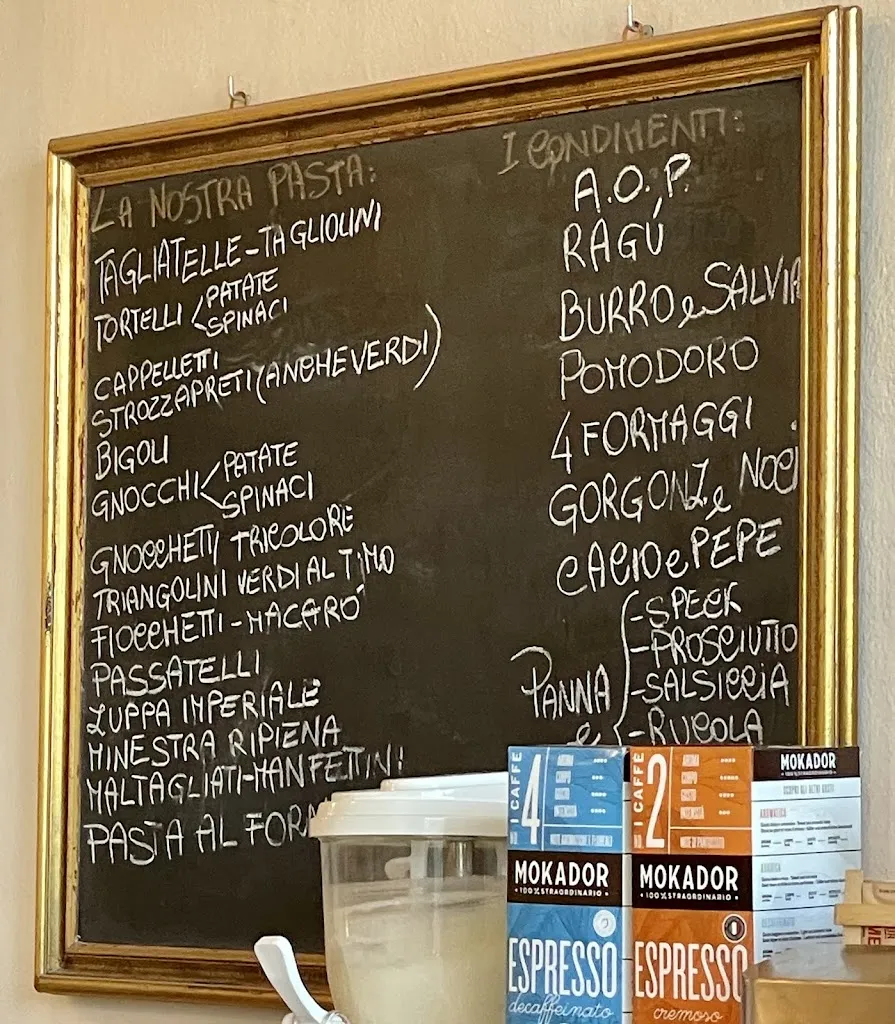 LA NOSTRA PASTA:
TAGLIATELLE-TAGLIOLINI
TORTELLI < PATATE
SPINACI
CAPPELLETTI
STROZZAPRETI (ANCHE VERDI)
BIGOLI
GNOCCHI < PATATE
SPINACI
GNOCCHETTI TRICOLORE
TRIANGOLINI VERDI AL TIMO
FIOCCHETTI-MACARO'
PASSATELLI
ZUPPA IMPERIALE
MINESTRA RIPIENA
MALTAGLIATI-MANFETTINI
PASTA AL FOR
I CONDIMENTI:
A.O.P.
RAGÚ
BURRO e SALVIA
POMODORO
4 FORMAGGI
GORGONZ. e NOCI
CACIO e PEPE
PANNA e
-SPECK
-PROSCIUTTO
-SALSICCIA
-RUCOLA
NO. 4 I CAFFÈ
AROMA
CORPO
MOKADOR
100% STRAORDINARIO
ESPRESSO
decaffeinato
NO. 2 I CAFFÈ
AROMA
CORPO
MOKADOR
100% STRAORDINARIO
ESPRESSO
cremoso
MOKADOR
100% STRAORDINARIO
SCOPRI GLI ALTRI GUSTI
AROMATICA
ARABICA
DECAFFEINATO